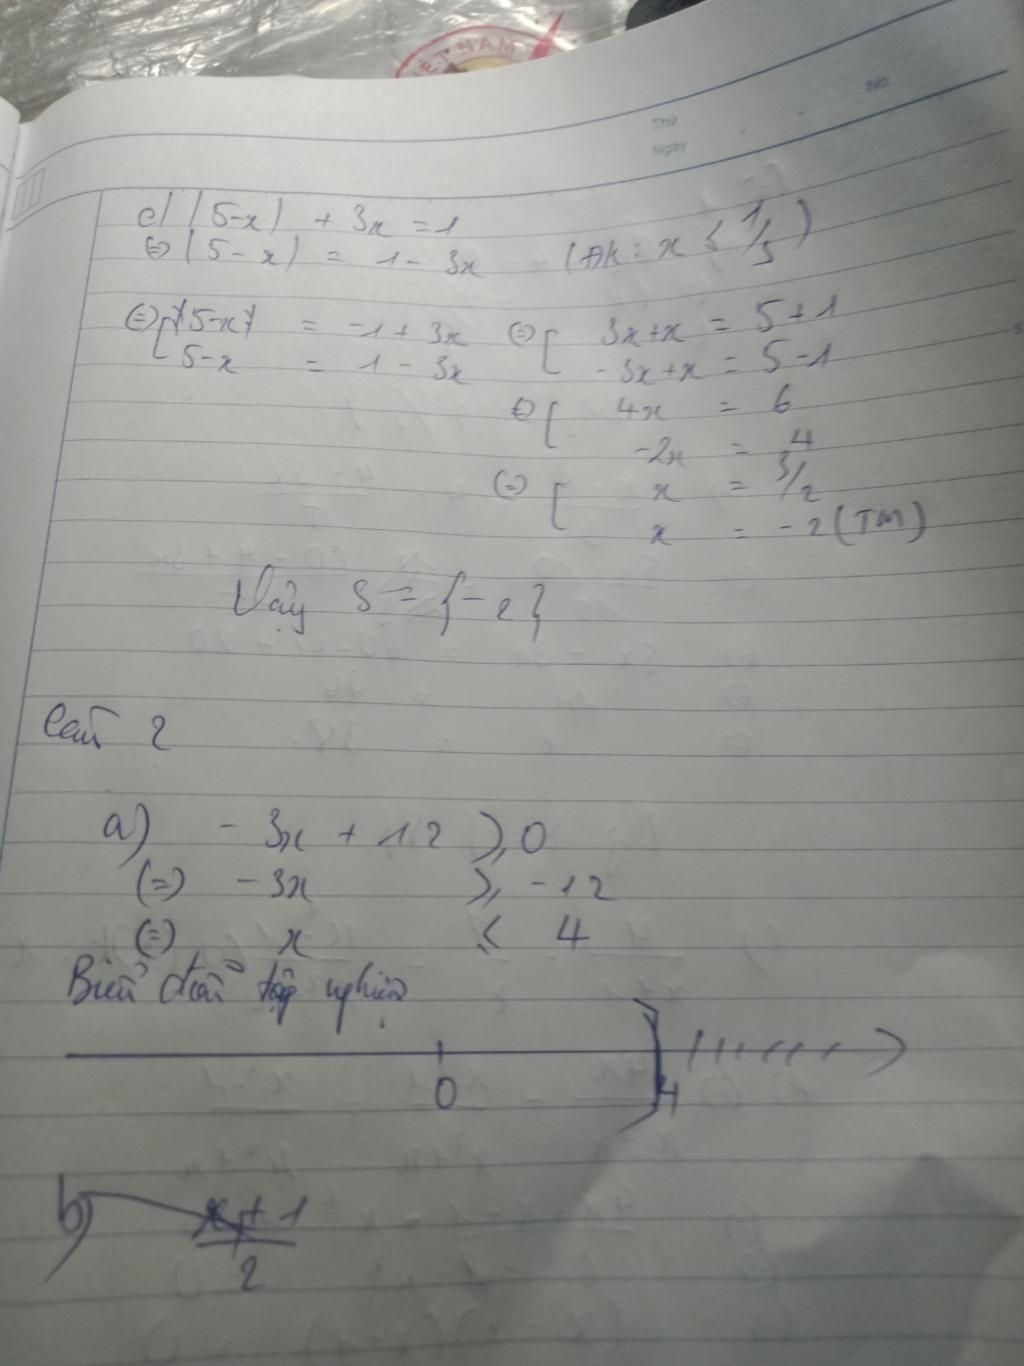 VIỆT NAM
Thứ
Ngày No.
c) |5-x| + 3x = 1
(=) |5-x| = 1-3x (ĐK: x ≤ 1/3)
(=) [ 5-x = -1+3x (=) [ 3x+x = 5+1
5-x = 1-3x -3x+x = 5-1
(=) [ 4x = 6
-2x = 4
(=) [ x = 3/2
x = -2 (TM)
Vậy S = {-2}
Câu 2
a) -3x + 12 ≥ 0
(=) -3x ≥ -12
(=) x ≤ 4
Biểu diễn tập nghiệm
0 4
b) x+1
2